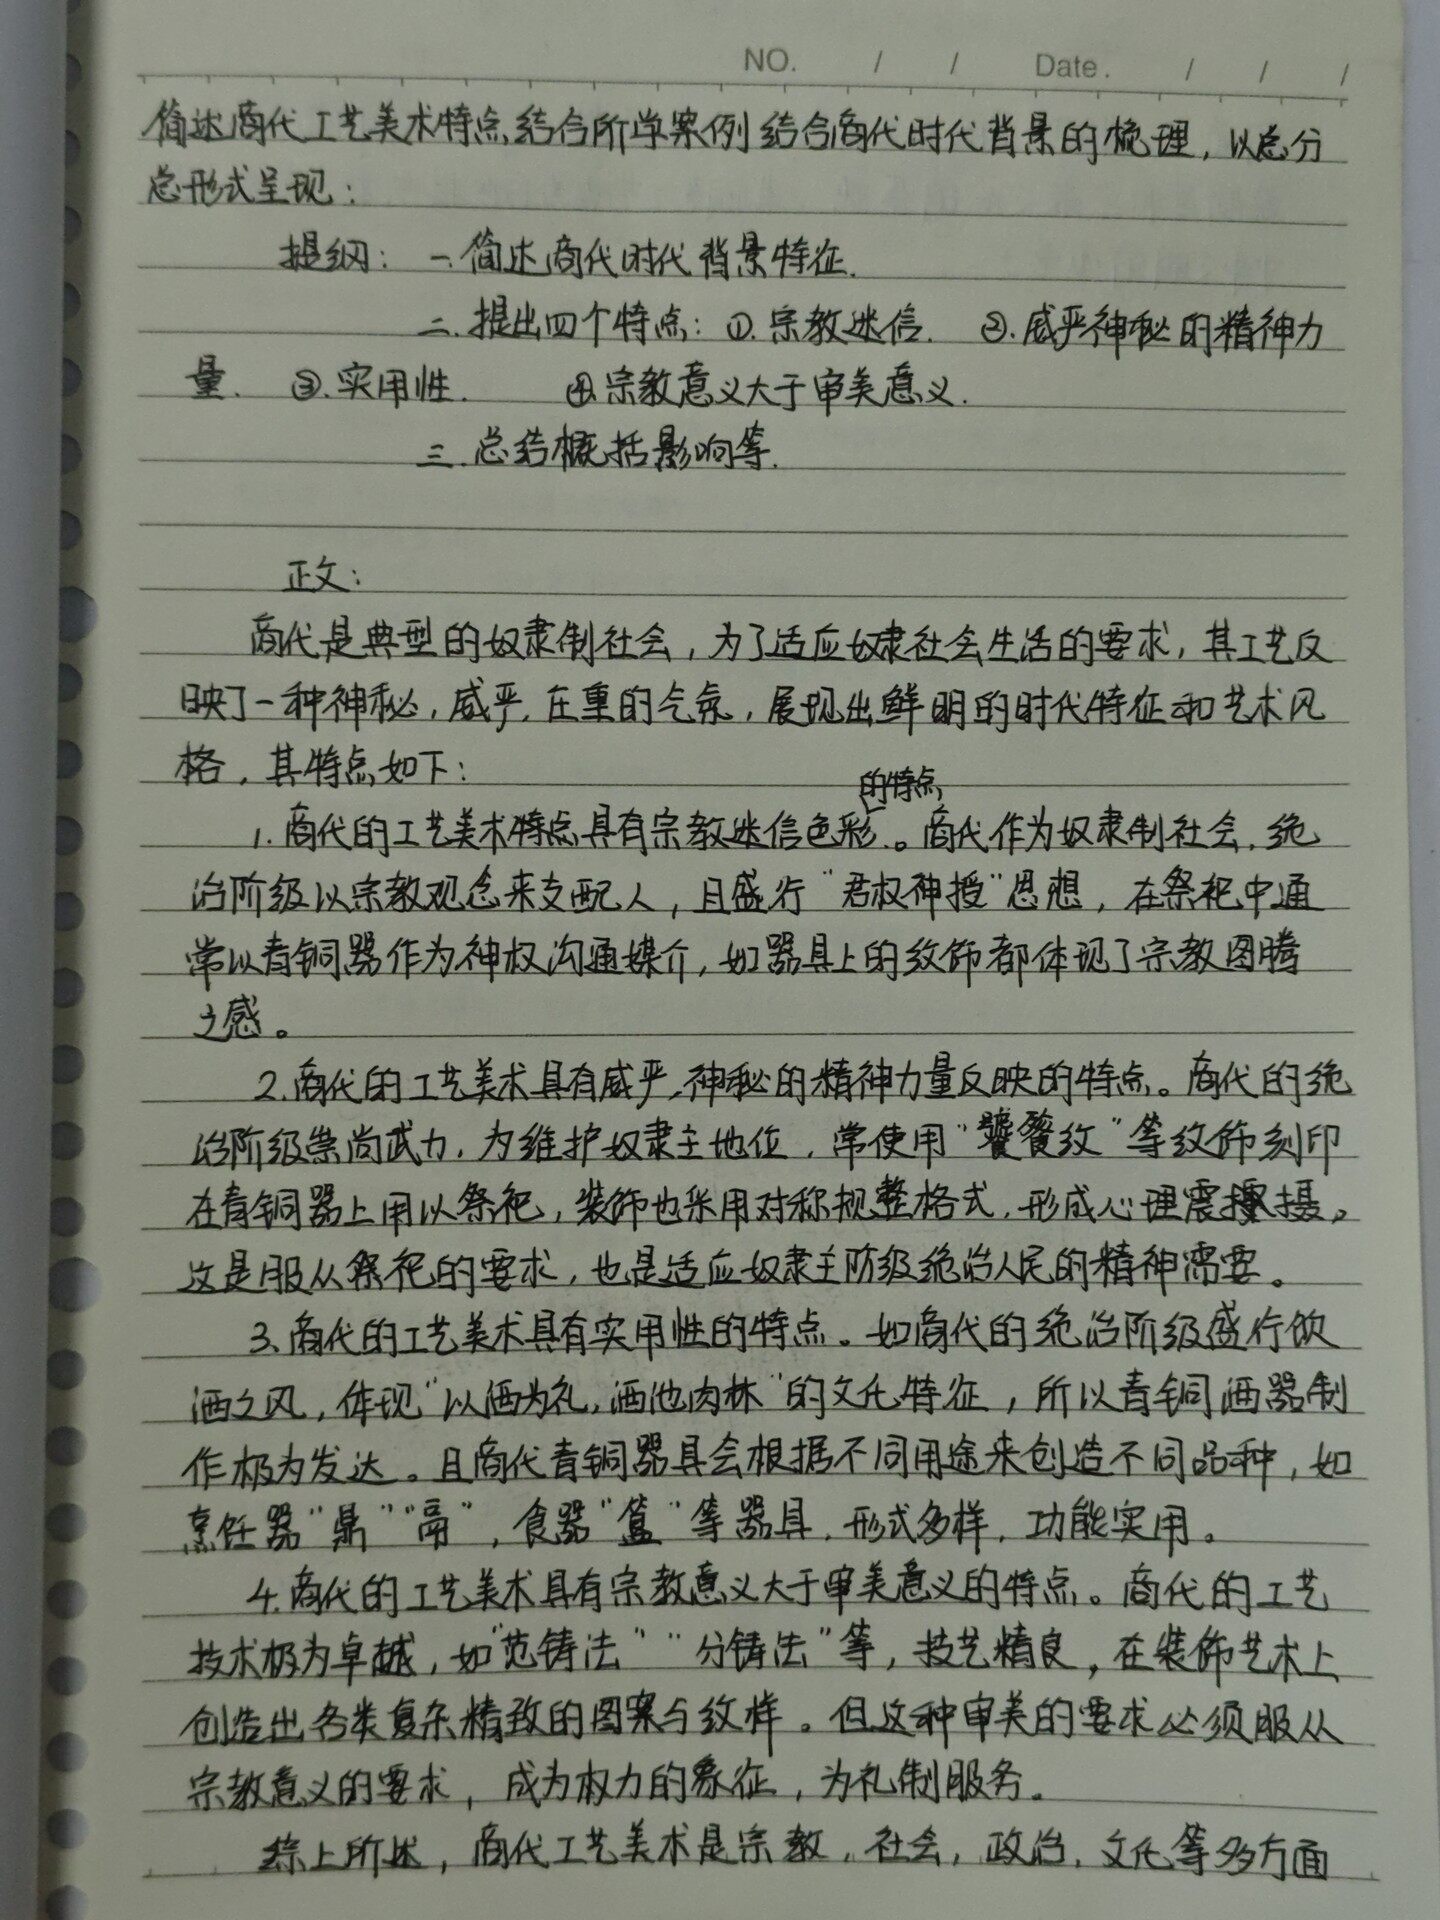 NO. / / Date. / / /
简述商代工艺美术特点结合所学案例结合商代时代背景的梳理，以总分
总形式呈现：
提纲： 一.简述商代时代背景特征.
二.提出四个特点：①.宗教迷信. ②.威严神秘的精神力
量. ③.实用性. ④.宗教意义大于审美意义.
三.总结概括影响等.
正文：
商代是典型的奴隶制社会，为了适应奴隶社会生活的要求，其工艺反
映了一种神秘，威严，庄重的气氛，展现出鲜明的时代特征和艺术风
格，其特点如下：
的特点
1.商代的工艺美术特点具有宗教迷信色彩。商代作为奴隶制社会，统
治阶级以宗教观念来支配人，且盛行“君权神授”思想，在祭祀中通
常以青铜器作为神权沟通媒介，如器具上的纹饰都体现了宗教图腾
之感。
2.商代的工艺美术具有威严，神秘的精神力量反映的特点。商代的统
治阶级崇尚武力，为维护奴隶主地位，常使用“饕餮纹”等纹饰刻印
在青铜器上用以祭祀，装饰也采用对称规整格式，形成心理震摄。
这是服从祭祀的要求，也是适应奴隶主阶级统治人民的精神需要。
3.商代的工艺美术具有实用性的特点。如商代的统治阶级盛行饮
酒之风，体现“以酒为礼，酒池肉林”的文化特征，所以青铜酒器制
作极为发达。且商代青铜器具会根据不同用途来创造不同品种，如
烹饪器“鼎”“鬲”，食器“簋”等器具，形式多样，功能实用。
4.商代的工艺美术具有宗教意义大于审美意义的特点。商代的工艺
技术极为卓越，如“范铸法”“分铸法”等，技艺精良，在装饰艺术上
创造出各类复杂精致的图案与纹样。但这种审美的要求必须服从
宗教意义的要求，成为权力的象征，为礼制服务。
综上所述，商代工艺美术是宗教，社会，政治，文化等多方面